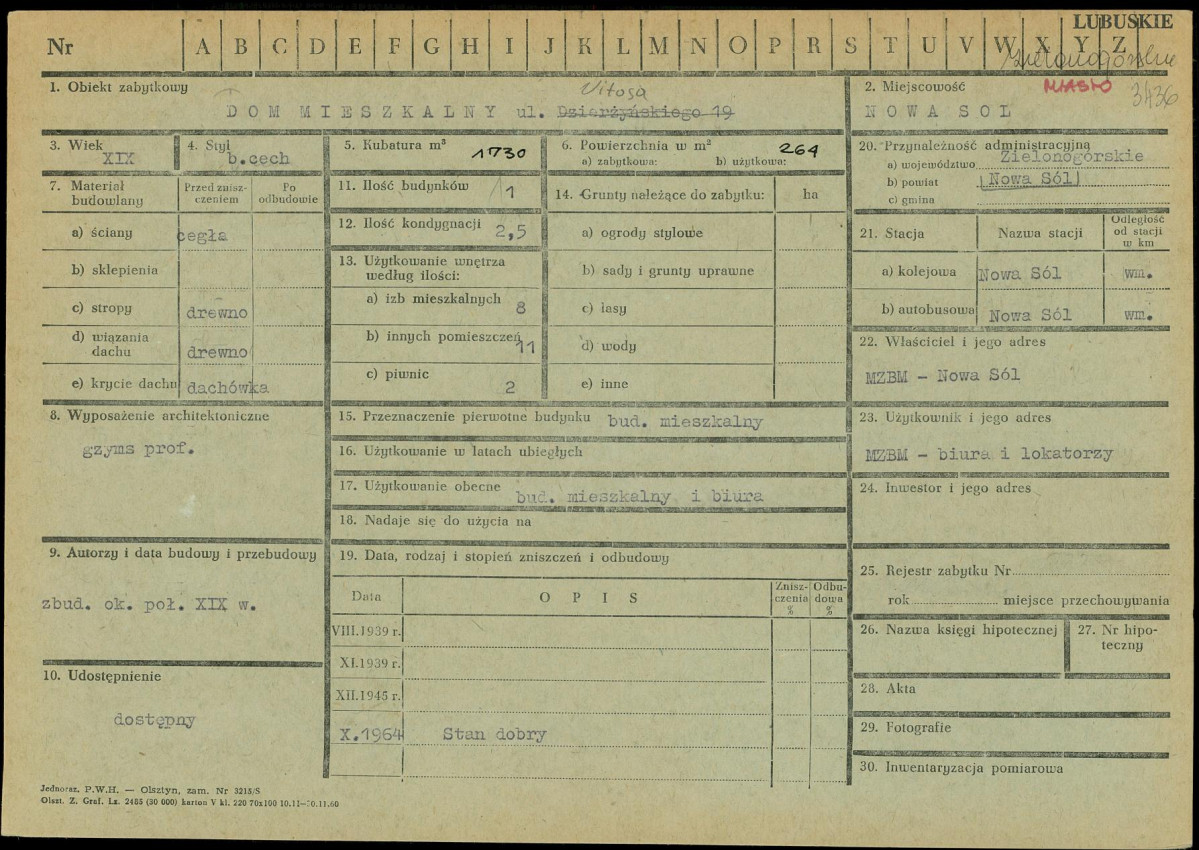 LUBUSKIE
Nr A B C D E F G H I J K L M N O P R S T U V W X Y Z
Zielonogórskie
1. Obiekt zabytkowy
Witosa
DOM MIESZKALNY ul. Dzierżyńskiego 19
2. Miejscowość
MIASTO
3436
NOWA SOL
3. Wiek
XIX
4. Styl
b.cech
5. Kubatura m³ 1730
6. Powierzchnia w m² 264
a) zabytkowa: b) użytkowa:
20. Przynależność administracyjną
a) województwo Zielonogórskie
b) powiat Nowa Sól
c) gmina
7. Materiał budowlany
Przed zniszczeniem
Po odbudowie
a) ściany cegła
b) sklepienia
c) stropy drewno
d) wiązania dachu drewno
e) krycie dachu dachówka
11. Ilość budynków 1
12. Ilość kondygnacji 2,5
13. Użytkowanie wnętrza
według ilości:
a) izb mieszkalnych 8
b) innych pomieszczeń 11
c) piwnic 2
14. Grunty należące do zabytku: ha
a) ogrody stylowe
b) sady i grunty uprawne
c) lasy
d) wody
e) inne
21. Stacja Nazwa stacji
Odległość
od stacji
w km
a) kolejowa Nowa Sól wm.
b) autobusowa Nowa Sól wm.
22. Właściciel i jego adres
MZBM - Nowa Sól
8. Wyposażenie architektoniczne
gzyms prof.
15. Przeznaczenie pierwotne budynku bud. mieszkalny
16. Użytkowanie w latach ubiegłych
17. Użytkowanie obecne bud. mieszkalny i biura
18. Nadaje się do użycia na
23. Użytkownik i jego adres
MZBM - biura i lokatorzy
24. Inwestor i jego adres
9. Autorzy i data budowy i przebudowy
zbud. ok. poł. XIX w.
19. Data, rodzaj i stopień zniszczeń i odbudowy
Data OPIS
Zniszczenia %
Odbudowa %
VIII.1939 r.
XI.1939 r.
XII.1945 r.
X.1964 Stan dobry
25. Rejestr zabytku Nr
rok miejsce przechowywania
26. Nazwa księgi hipotecznej
27. Nr hipoteczny
10. Udostępnienie
dostępny
28. Akta
29. Fotografie
30. Inwentaryzacja pomiarowa
Jednoraz. P.W.H. — Olsztyn, zam. Nr 3215/S
Olszt. Z. Graf. Lz. 2455 (30 000) karton V kl. 220 70x100 10.11—10.11.60